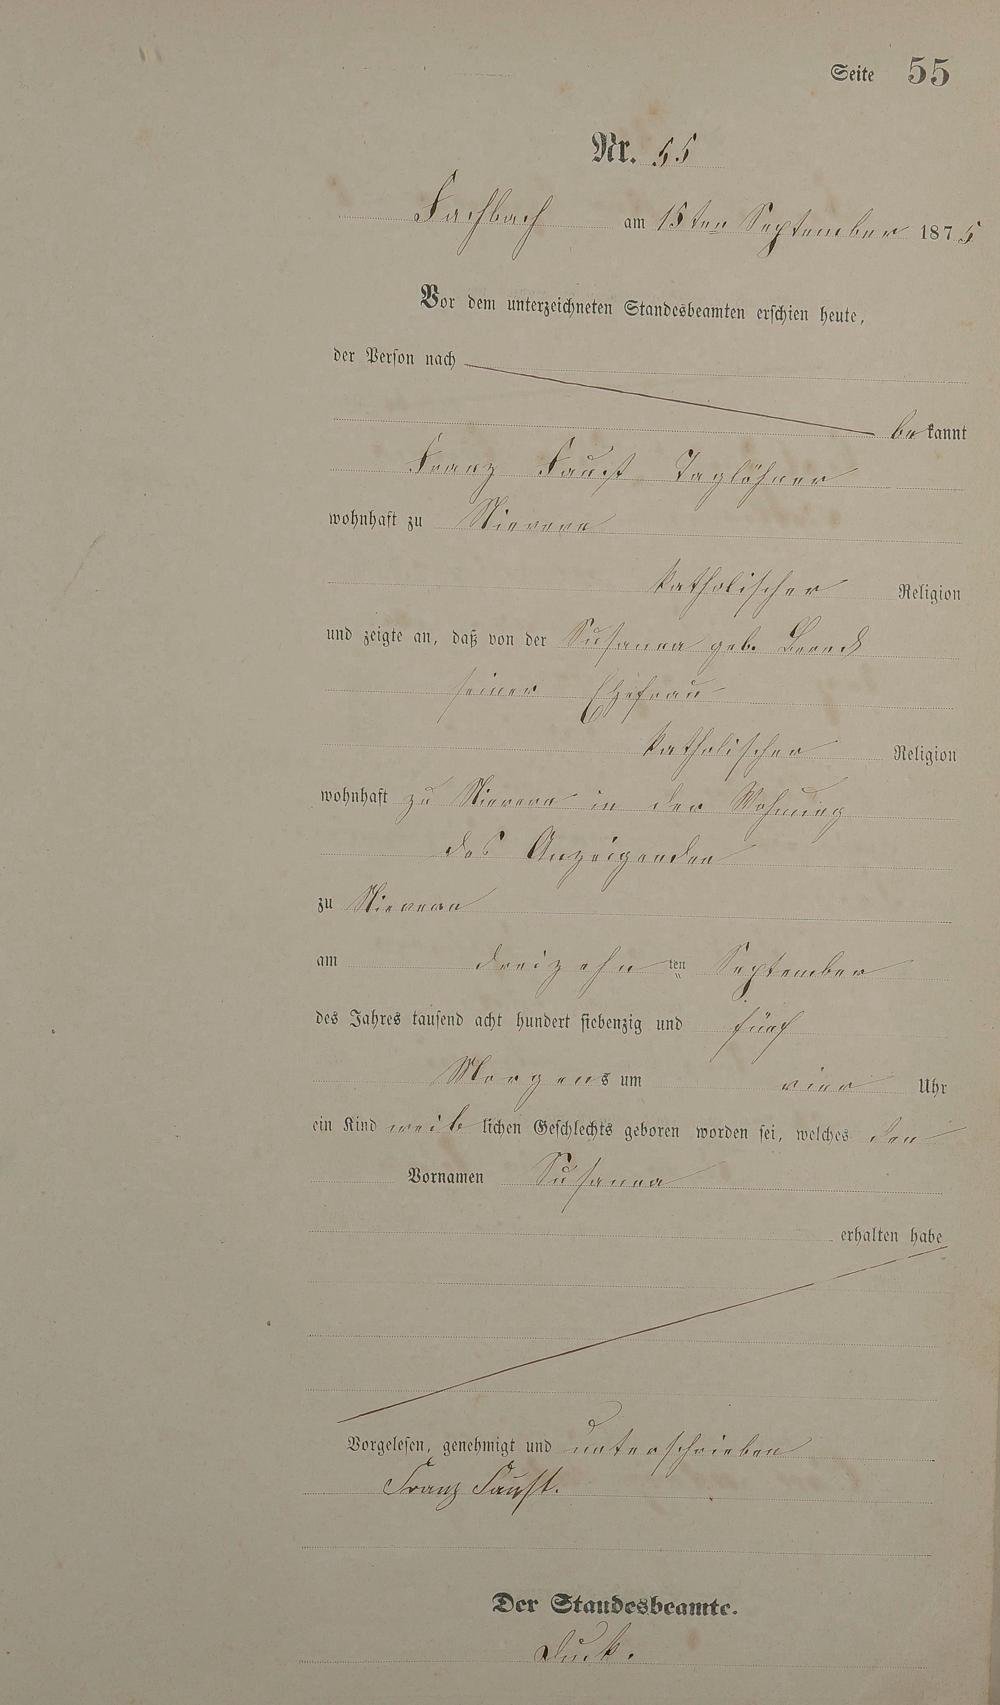 Seite 55
Nr. 55
Fachbach am 15ten September 1875
Vor dem unterzeichneten Standesbeamten erschien heute,
der Person nach
bekannt
Franz Faust Taglöhner
wohnhaft zu Nievern
katholischer Religion
und zeigte an, daß von der Susanna geb.
seiner Ehefrau
katholischer Religion
wohnhaft zu Nievern in der Wohnung
des Anzeigenden
zu Nievern
am dreizehnten September
des Jahres tausend acht hundert siebenzig und fünf
Morgens um vier Uhr
ein Kind weiblichen Geschlechts geboren worden sei, welches den
Vornamen Susanna
erhalten habe
Vorgelesen, genehmigt und unterschrieben
Franz Faust.
Der Standesbeamte.